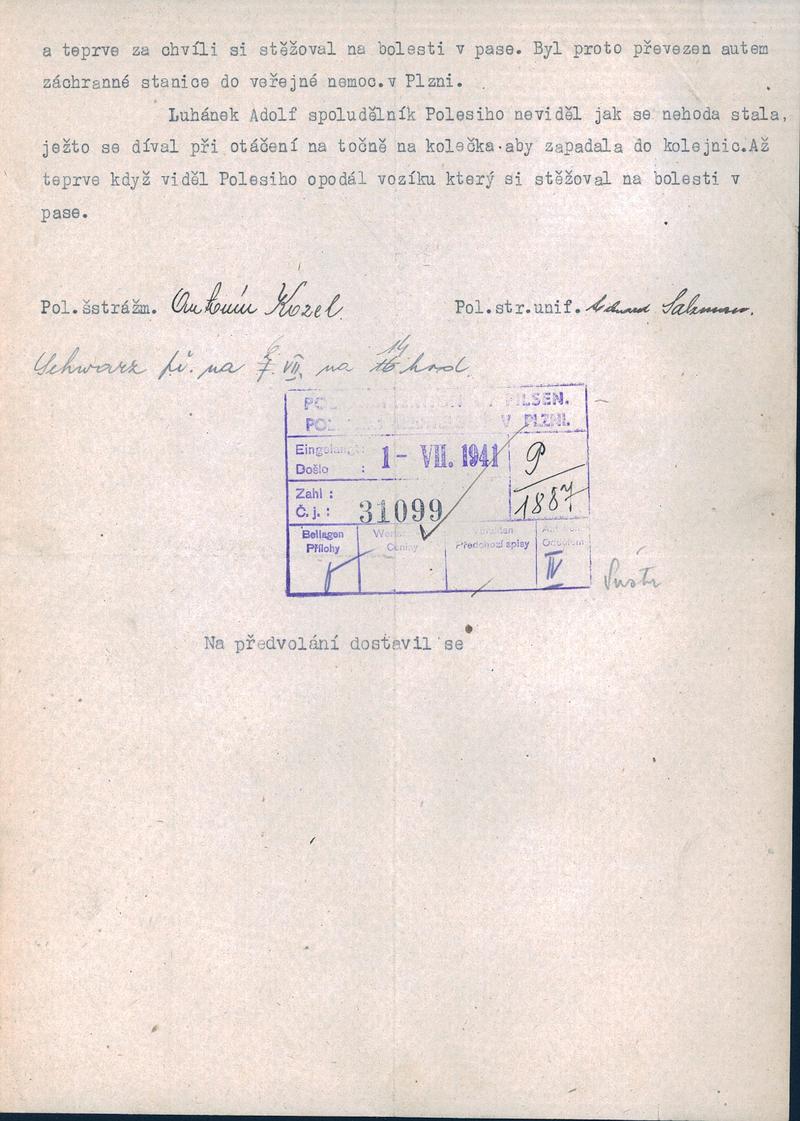 a teprve za chvíli si stěžoval na bolesti v pase. Byl proto převezen autem
záchranné stanice do veřejné nemoc.v Plzni.
Luhánek Adolf spoludělník Polesiho neviděl jak se nehoda stala,
ježto se díval při otáčení na točně na kolečka.aby zapadala do kolejnic.Až
teprve když viděl Polesiho opodál vozíku který si stěžoval na bolesti v
pase.
Pol.šstrážm. Antonín Kozel Pol.str.unif.
Schwarz na 7. VII. na hod.
PILSEN.
V PLZNI.
Došlo : 1- VII. 1941 P
Zahl :
Č.j. : 31099 1887
Beilagen
Přílohy Ceniny Předchozí spisy
IV
Na předvolání dostavil se